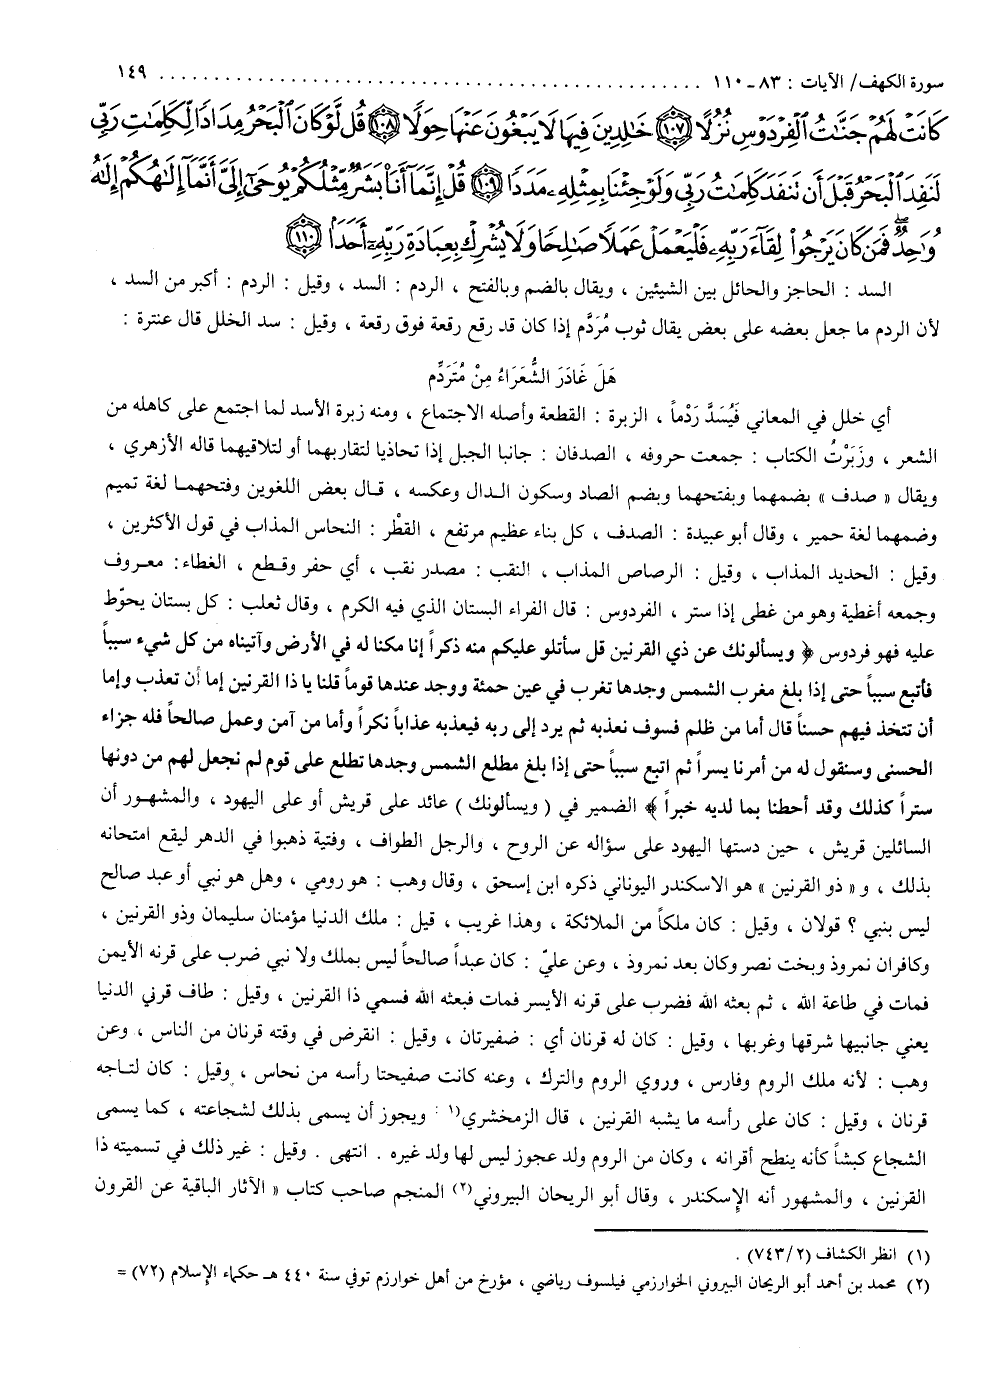 سورة الكهف/ الآيات : ٨٣ - ١١٠ ........................................ ١٤٩
كَانَتْ لَهُمْ جَنَّاتُ الْفِرْدَوْسِ نُزُلًا ﴿١٠٧﴾ خَالِدِينَ فِيهَا لَا يَبْغُونَ عَنْهَا حِوَلًا ﴿١٠٨﴾ قُل لَّوْ كَانَ الْبَحْرُ مِدَادًا لِّكَلِمَاتِ رَبِّي
لَنَفِدَ الْبَحْرُ قَبْلَ أَن تَنفَدَ كَلِمَاتُ رَبِّي وَلَوْ جِئْنَا بِمِثْلِهِ مَدَدًا ﴿١٠٩﴾ قُلْ إِنَّمَا أَنَا بَشَرٌ مِّثْلُكُمْ يُوحَى إِلَيَّ أَنَّمَا إِلَهُكُمْ إِلَهٌ
وَاحِدٌ فَمَن كَانَ يَرْجُوا لِقَاءَ رَبِّهِ فَلْيَعْمَلْ عَمَلًا صَالِحًا وَلَا يُشْرِكْ بِعِبَادَةِ رَبِّهِ أَحَدًا ﴿١١٠﴾
السد : الحاجز والحائل بين الشيئين ، ويقال بالضم وبالفتح ، الردم : السد ، وقيل : الردم : أكبر من السد ،
لأن الردم ما جعل بعضه على بعض يقال ثوب مُرَدَّم إذا كان قد رقع رقعة فوق رقعة ، وقيل : سد الخلل قال عنترة :
هَلَ غَادَرَ الشُّعَرَاءُ مِنْ مُتَرَدِّم
أي خلل في المعاني فَيُسَدَّ رَدْماً ، الزبرة : القطعة وأصله الاجتماع ، ومنه زبرة الأسد لما اجتمع على كاهله من
الشعر ، وزَبَرْتُ الكتاب : جمعت حروفه ، الصدفان : جانبا الجبل إذا تحاذيا لتقاربهما أو لتلاقيهما قاله الأزهري ،
ويقال « صدف » بضمهما وبفتحهما وبضم الصاد وسكون الدال وعكسه ، قال بعض اللغوين وفتحهما لغة تميم
وضمهما لغة حمير ، وقال أبو عبيدة : الصدف ، كل بناء عظيم مرتفع ، القطْر : النحاس المذاب في قول الأكثرين ،
وقيل : الحديد المذاب ، وقيل : الرصاص المذاب ، النقب : مصدر نقب ، أي حفر وقطع ، الغطاء : معروف
وجمعه أغطية وهو من غطى إذا ستر ، الفردوس : قال الفراء البستان الذي فيه الكرم ، وقال ثعلب : كل بستان يحوّط
عليه فهو فردوس ﴿ ويسألونك عن ذي القرنين قل سأتلو عليكم منه ذكراً إنا مكنا له في الأرض وآتيناه من كل شيء سبباً
فأتبع سبباً حتى إذا بلغ مغرب الشمس وجدها تغرب في عين حمئة ووجد عندها قوماً قلنا يا ذا القرنين إما أن تعذب وإما
أن تتخذ فيهم حسناً قال أما من ظلم فسوف نعذبه ثم يرد إلى ربه فيعذبه عذاباً نكراً وأما من آمن وعمل صالحاً فله جزاء
الحسنى وسنقول له من أمرنا يسراً ثم اتبع سبباً حتى إذا بلغ مطلع الشمس وجدها تطلع على قوم لم نجعل لهم من دونها
ستراً كذلك وقد أحطنا بما لديه خبراً ﴾ الضمير في ( ويسألونك ) عائد على قريش أو على اليهود ، والمشهور أن
السائلين قريش ، حين دستها اليهود على سؤاله عن الروح ، والرجل الطواف ، وفتية ذهبوا في الدهر ليقع امتحانه
بذلك ، و « ذو القرنين » هو الاسكندر اليوناني ذكره ابن إسحق ، وقال وهب : هو رومي ، وهل هو نبي أو عبد صالح
ليس بنبي ؟ قولان ، وقيل : كان ملكاً من الملائكة ، وهذا غريب ، قيل : ملك الدنيا مؤمنان سليمان وذو القرنين ،
وكافران نمروذ وبخت نصر وكان بعد نمروذ ، وعن عليّ : كان عبداً صالحاً ليس بملك ولا نبي ضرب على قرنه الأيمن
فمات في طاعة الله ، ثم بعثه الله فضرب على قرنه الأيسر فمات فبعثه الله فسمي ذا القرنين ، وقيل : طاف قرني الدنيا
يعني جانبيها شرقها وغربها ، وقيل : كان له قرنان أي : ضفيرتان ، وقيل : انقرض في وقته قرنان من الناس ، وعن
وهب : لأنه ملك الروم وفارس ، وروي الروم والترك ، وعنه كانت صفيحتا رأسه من نحاس ، وقيل : كان لتاجه
قرنان ، وقيل : كان على رأسه ما يشبه القرنين ، قال الزمخشري(١) : ويجوز أن يسمى بذلك لشجاعته ، كما يسمى
الشجاع كبشاً كأنه ينطح أقرانه ، وكان من الروم ولد عجوز ليس لها ولد غيره . انتهى . وقيل : غير ذلك في تسميته ذا
القرنين ، والمشهور أنه الإسكندر ، وقال أبو الريحان البيروني(٢) المنجم صاحب كتاب « الآثار الباقية عن القرون
(١) انظر الكشاف (٧٤٣/٢) .
(٢) محمد بن أحمد أبو الريحان البيروني الخوارزمي فيلسوف رياضي ، مؤرخ من أهل خوارزم توفي سنة ٤٤٠ هـ حكماء الإسلام (٧٢) =